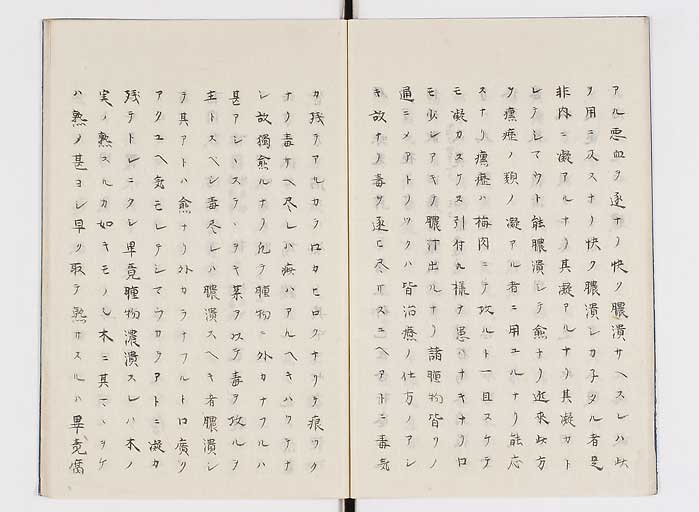 アル悪血ヲ逐ナリ快ク膿潰サヘスレハ此
ヲ用ニ及スナリ快ク膿潰シカ子タル者是
非内ニ凝アルナリ其凝アルナリ其凝カト
レテシマウト能膿潰シテ愈ナリ近来此方
ヲ癭瘱ノ類ノ凝アル者ニ用ユルナリ能応
スナリ癭瘱ハ梅肉ニテ攻ルト一旦スケテ
モ凝カスケス引付ル様ナ患ハナキナリ口
モ少シアキテ膿汁出ルナリ諸腫物皆クノ
通ニメアトノツクハ皆治療ノ仕方ノアシ
キ故ナリ毒ヲ逐ヒ尽サスユヘアトニ毒気
カ残テアルカラ口カヒロクナリテ痕ツク
ナリ毒サヘ尽レハ痕ハアルヘキハツテナ
シ故獨愈ルナリ凡テ腫物ニ外カナフルハ
甚アシヽステヽヲキ薬ヲ以テ毒ヲ攻ルヲ
主トスヘシ毒尽レハ膿潰スヘキ者膿潰シ
テ其アトハ愈ナリ外カラナフルト口廣ク
アクユヘ気モレテシマウカラアトニ凝カ
残テトレニクシ畢竟腫物濃潰スレハ木ノ
実ノ熟スルカ如キモノレ木ニ其マヽヲケ
ハ熟ノ甚ヨシ早ク取テ熟サスルハ畢竟腐